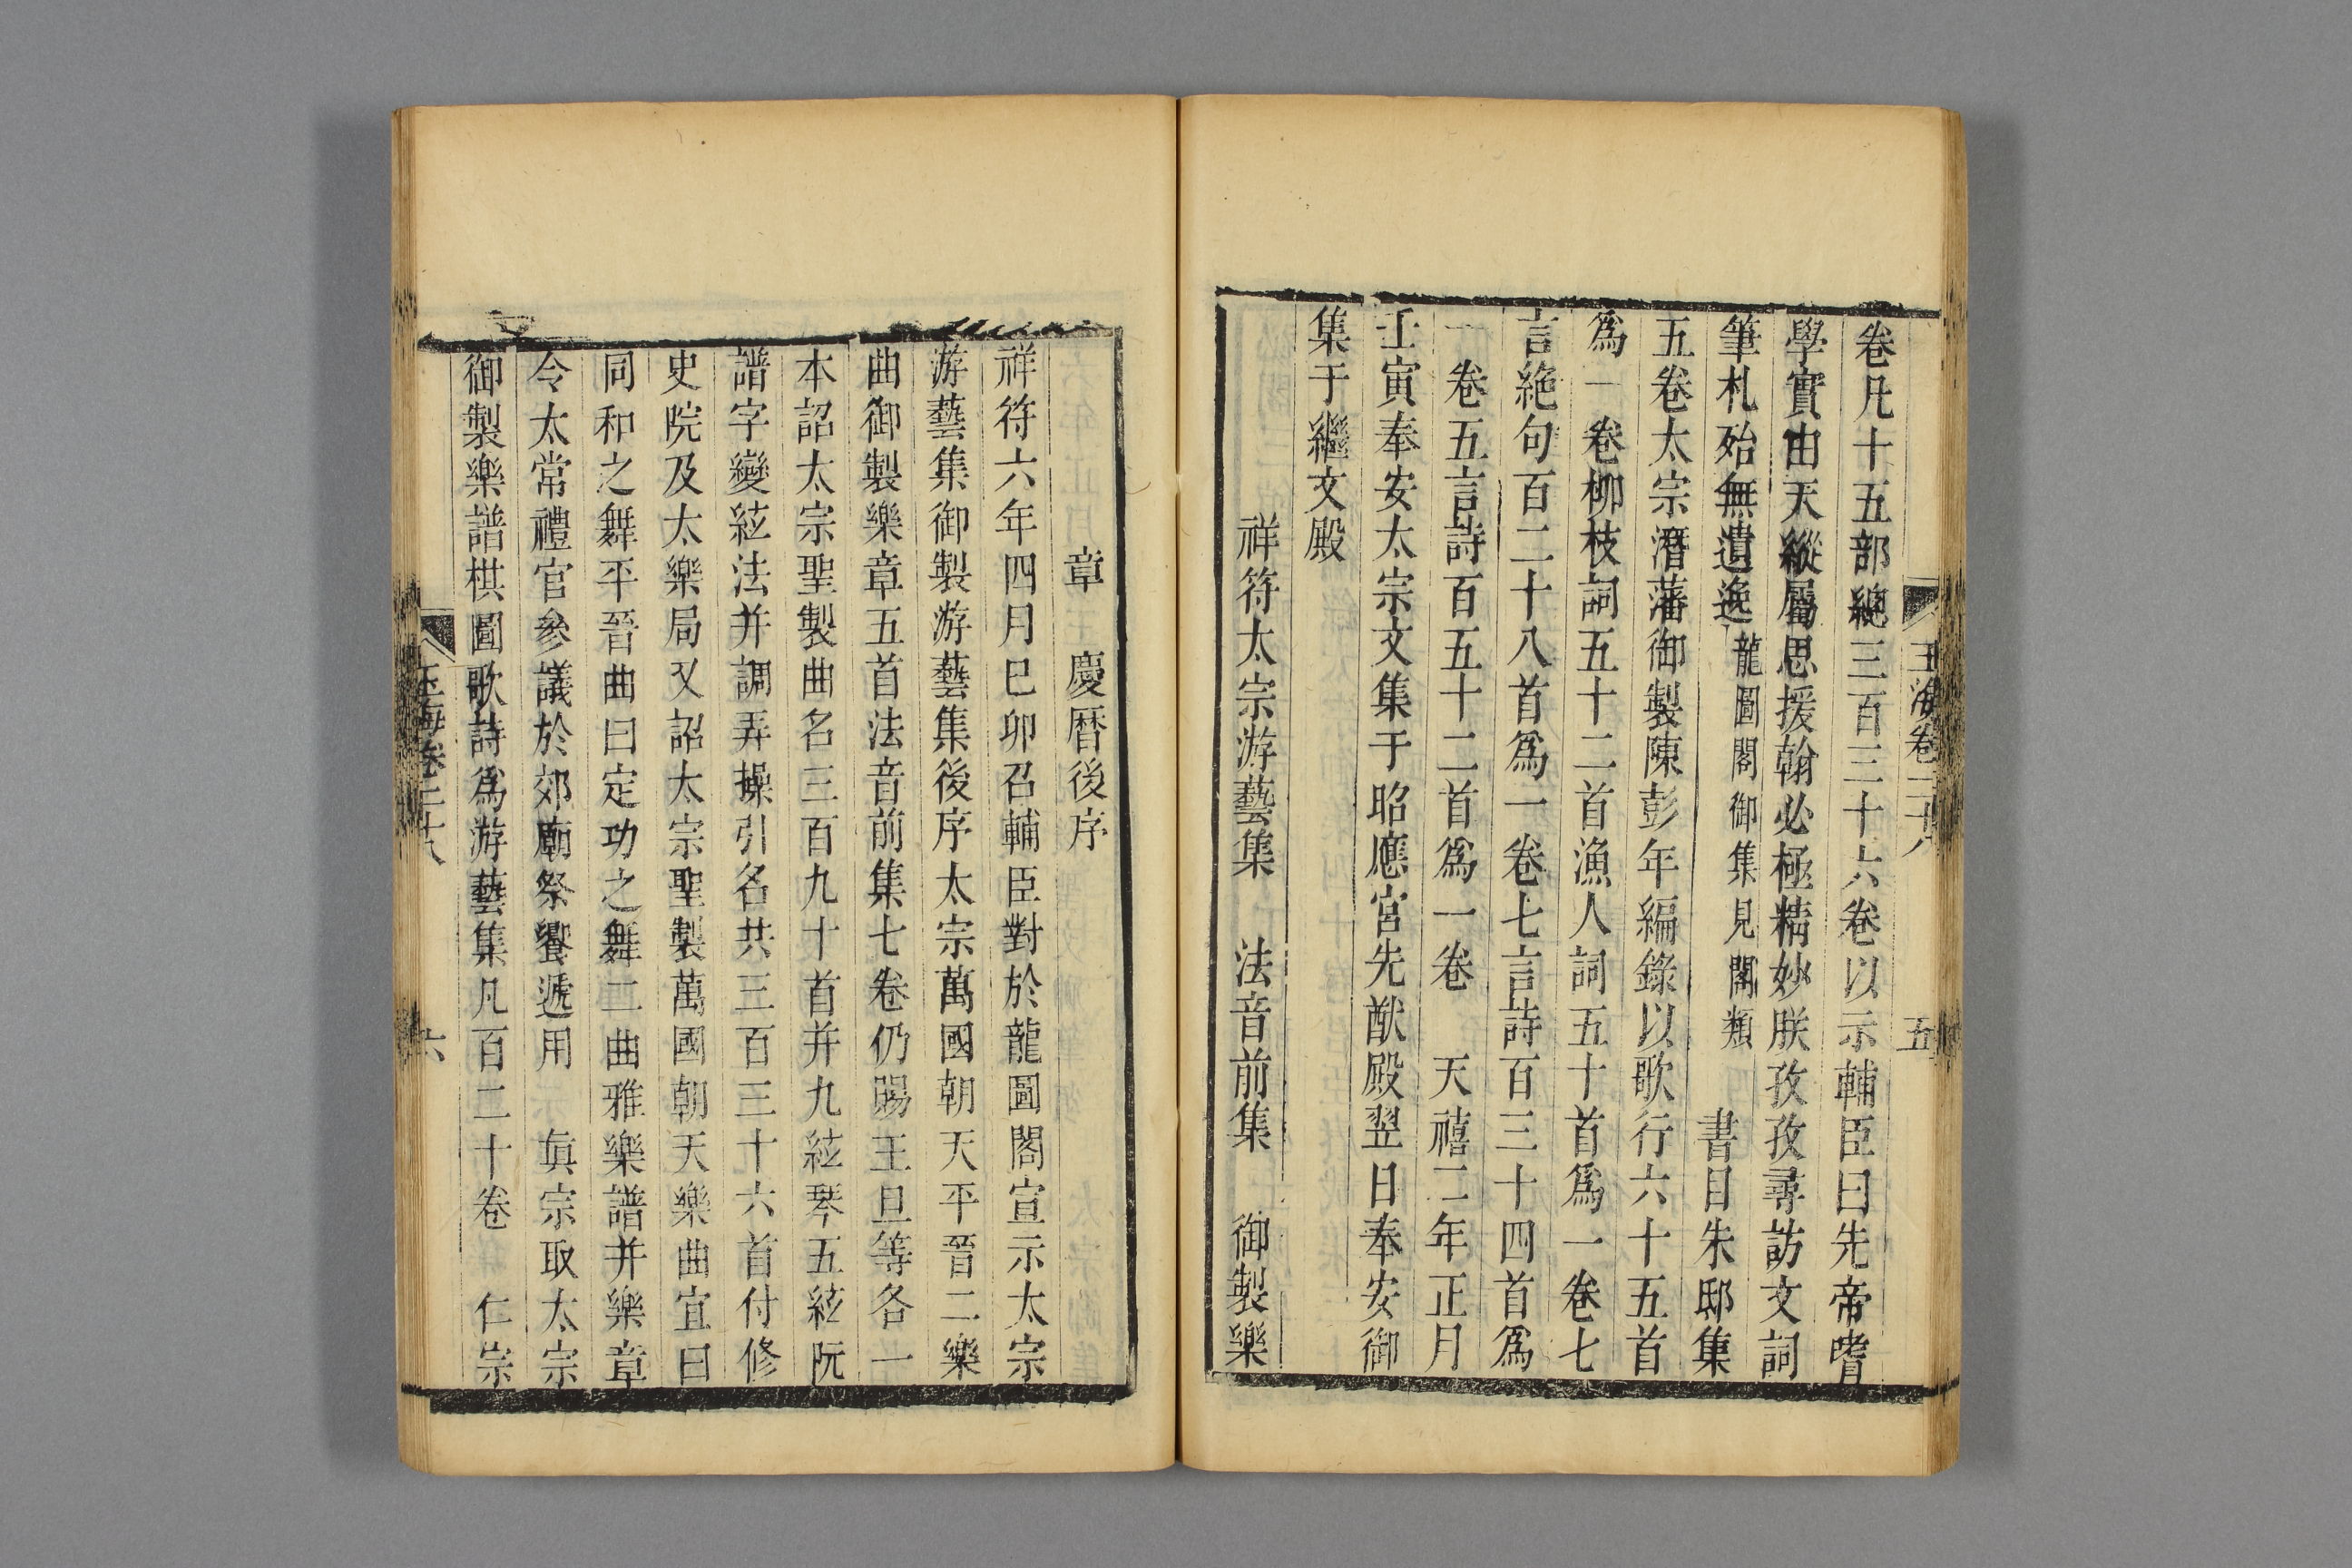 玉海卷二十八 五
卷凡十五部總三百三十六卷以示輔臣曰先帝嗜
學實由天縱屬思援翰必極精妙朕孜孜尋訪文詞
筆札殆無遺逸龍圖閣御集見閣類 書目朱邸集
五卷太宗潛藩御製陳彭年編錄以歌行六十五首
爲一卷柳枝詞五十二首漁人詞五十首爲一卷七
言絶句百二十八首爲一卷七言詩百三十四首爲
一卷五言詩百五十二首爲一卷 天禧二年正月
壬寅奉安太宗文集于昭應宮先猷殿翌日奉安御
集于繼文殿
祥符太宗游藝集 法音前集 御製樂
章 慶曆後序
祥符六年四月巳卯召輔臣對於龍圖閣宣示太宗
游藝集御製游藝集後序太宗萬國朝天平晉二樂
曲御製樂章五首法音前集七卷仍賜王旦等各一
本詔太宗聖製曲名三百九十首并九絃琴五絃阮
譜字變絃法并調弄操引名共三百三十六首付修
史院及太樂局又詔太宗聖製萬國朝天樂曲宜曰
同和之舞平晉曲曰定功之舞二曲雅樂譜并樂章
令太常禮官參議於郊廟祭饗遞用 眞宗取太宗
御製樂譜棋圖歌詩爲游藝集凡百二十卷 仁宗
玉海卷二十八 六